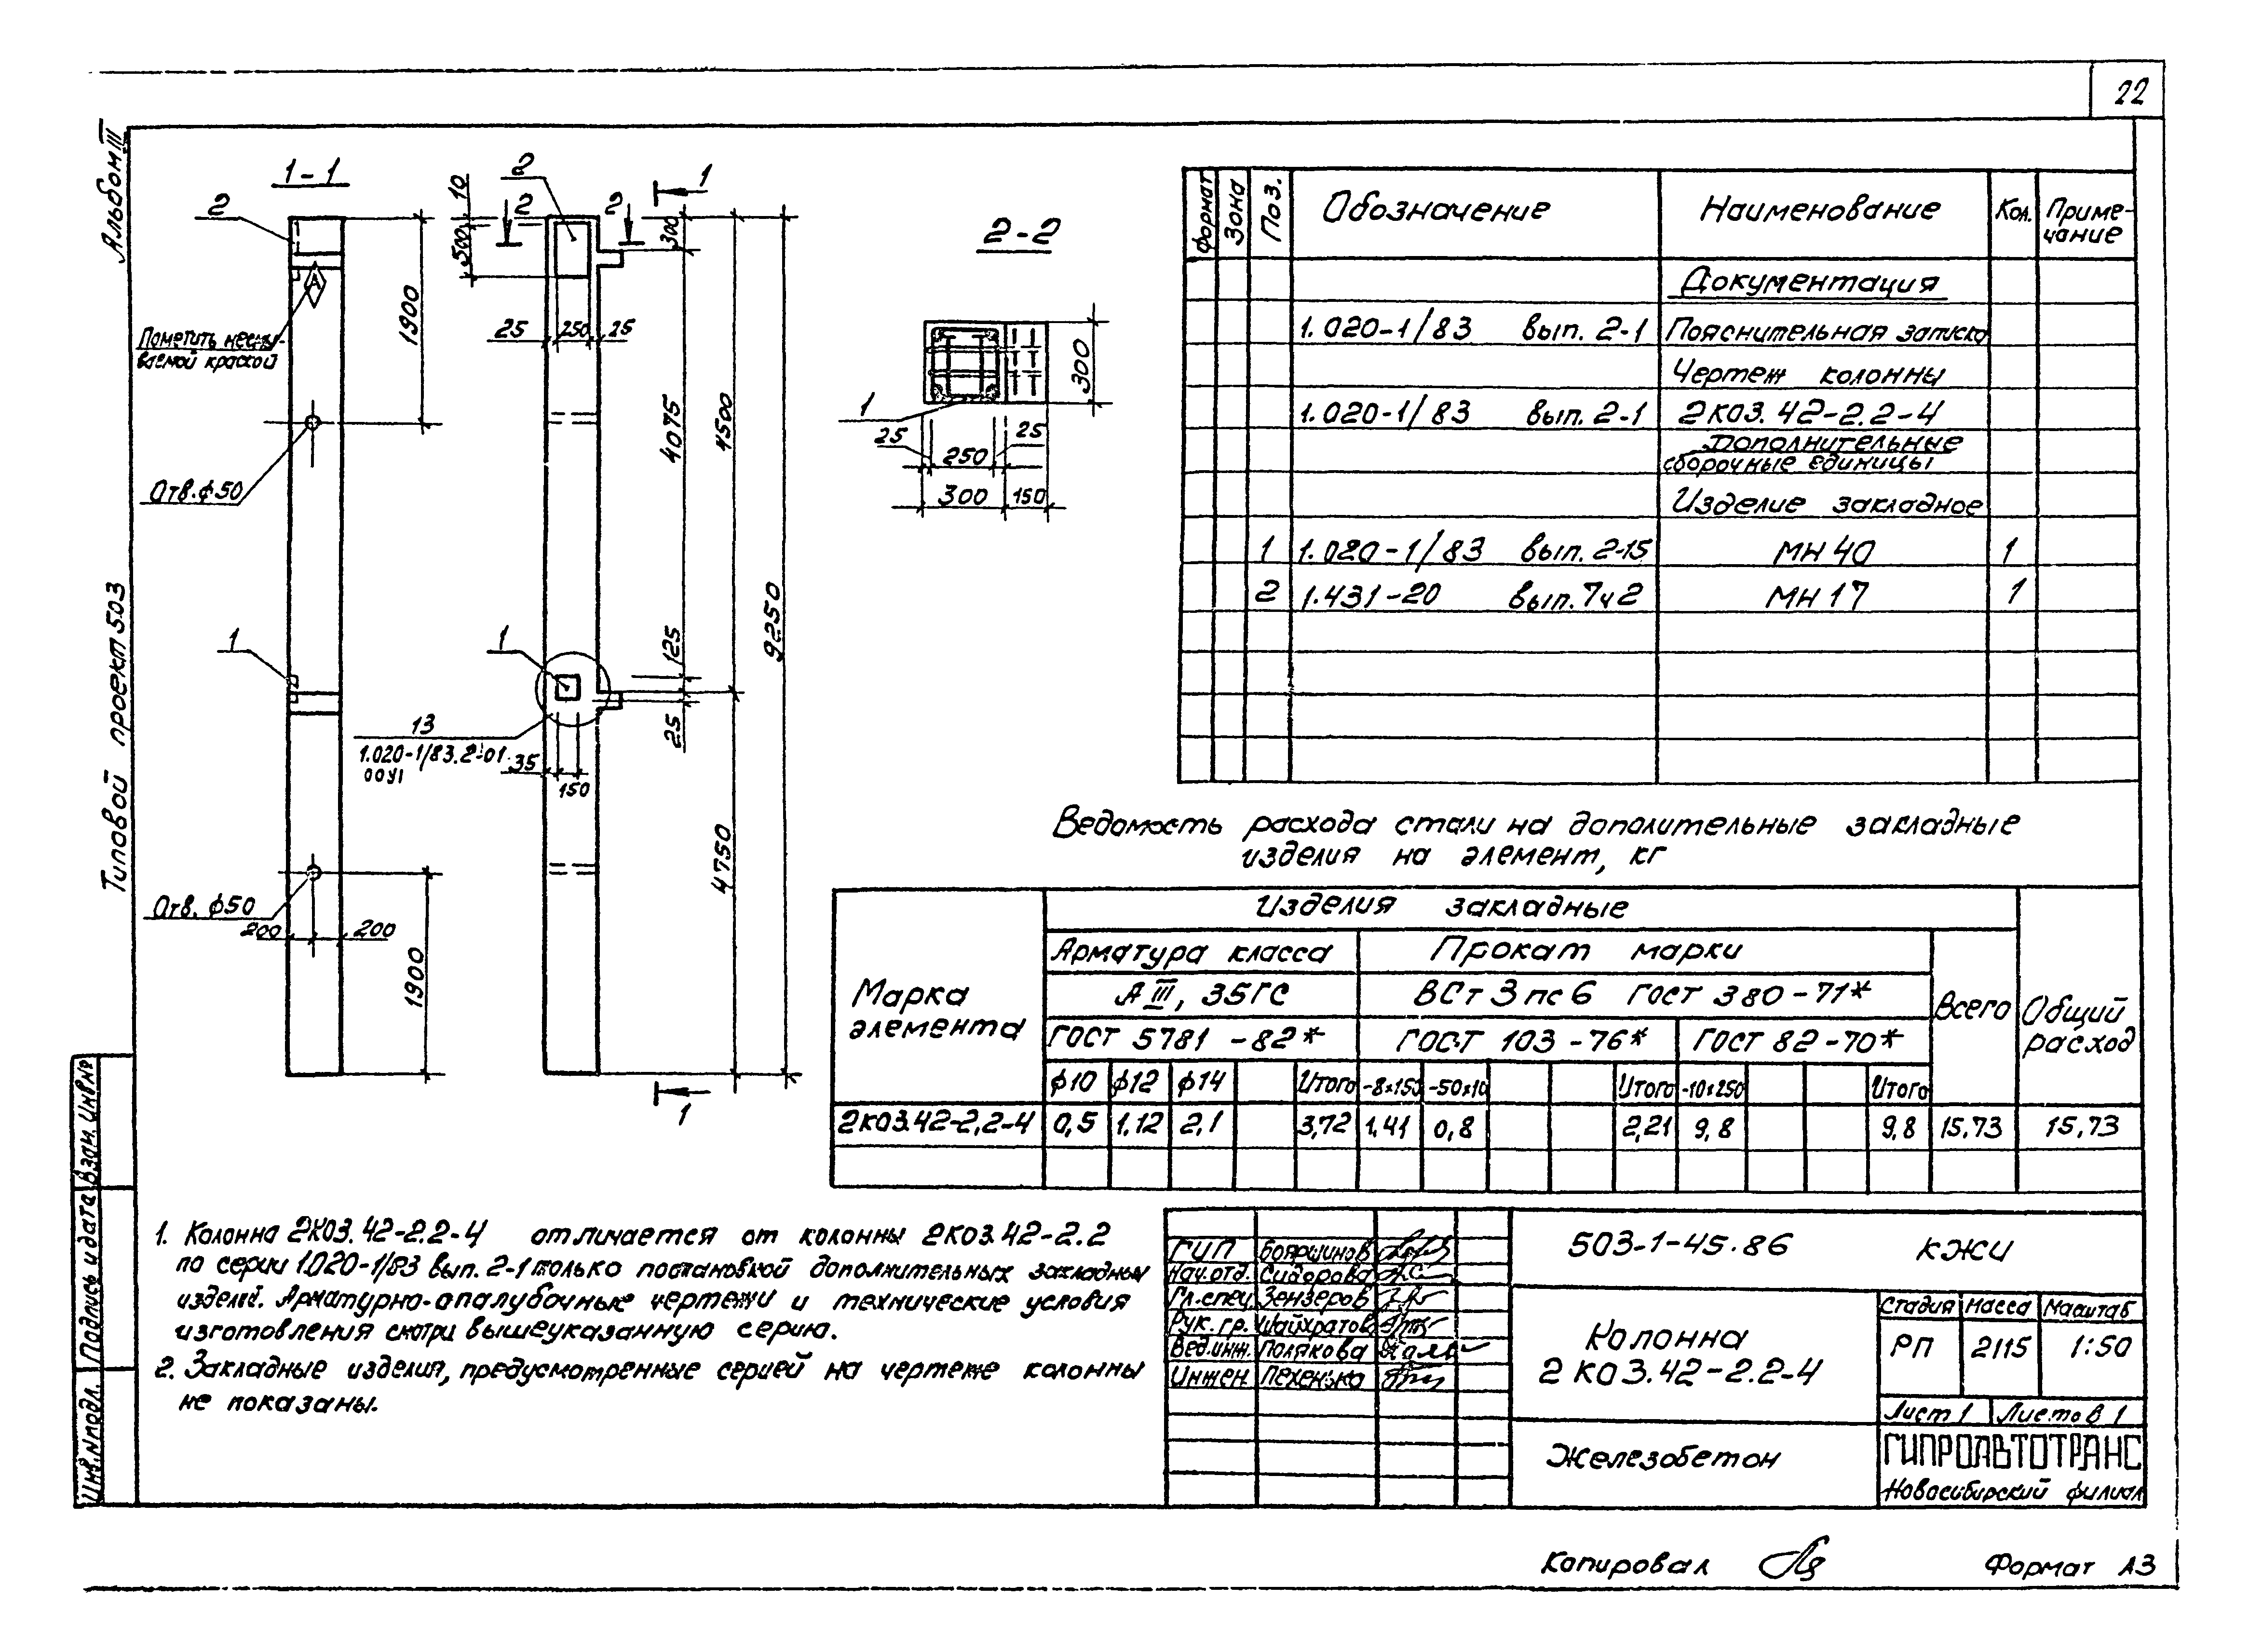 22
Альбом III
Типовой проект 503
Взам. инв№
Подпись и дата
Инв.N подл.
1-1
2
Пометить несмы-
ваемой краской
А
Отв.ф50
1
Отв. ф50
200
200
1900
1900
10
500
2
2
2
1
300
25
250
25
4075
4500
9250
1
125
25
13
1.020-1/83.2-1.01.
00У1
35
150
4750
1
2-2
1
300
25
250
25
300
150
Формат
Зона
Поз.
Обозначение
Наименование
Кол.
Приме-
чание
Документация
1.020-1/83 вып. 2-1 Пояснительная записка
Чертеж колонны
1.020-1/83 вып. 2-1 2К03.42-2.2-4
Дополнительные
сборочные единицы
Изделие закладное
1 1.020-1/83 вып. 2-15 МН 40 1
2 1.431-20 вып.7ч2 МН 17 1
Ведомость расхода стали на дополительные закладные
изделия на элемент, кг
Марка
элемента
Изделия закладные
Арматура класса
Прокат марки
А III, 35ГС
ВСт 3 пс 6 ГОСТ 380-71*
Всего
Общий
расход
ГОСТ 5781-82*
ГОСТ 103-76*
ГОСТ 82-70*
ф10 ф12 ф14 Итого -8х150 -50х10 Итого -10х250 Итого
2К03.42-2,2-4 0,5 1,12 2,1 3,72 1,41 0,8 2,21 9,8 9,8 15,73 15,73
1. Колонна 2К03.42-2.2-4 отличается от колонны 2К03.42-2.2
по серии 1.020-1/83 вып. 2-1 только постановкой дополнительных закладных
изделий. Арматурно-опалубочные чертежи и технические условия
изготовления смотри вышеуказанную серию.
2. Закладные изделия, предусмотренные серией на чертеже колонны
не показаны.
ГИП Бояршинов
Нач.отд. Сидорова
Гл.спец Зензеров
Рук.гр. Шайхратов
Вед.инж. Полякова
Инжен. Пехенько
503-1-45.86 КЖИ
Колонна
2К03.42-2.2-4
Стадия Масса Масштаб
РП 2115 1:50
Лист 1 Листов 1
Железобетон
ГИПРОАВТОТРАНС
Новосибирский филиал
Копировал
Формат А3